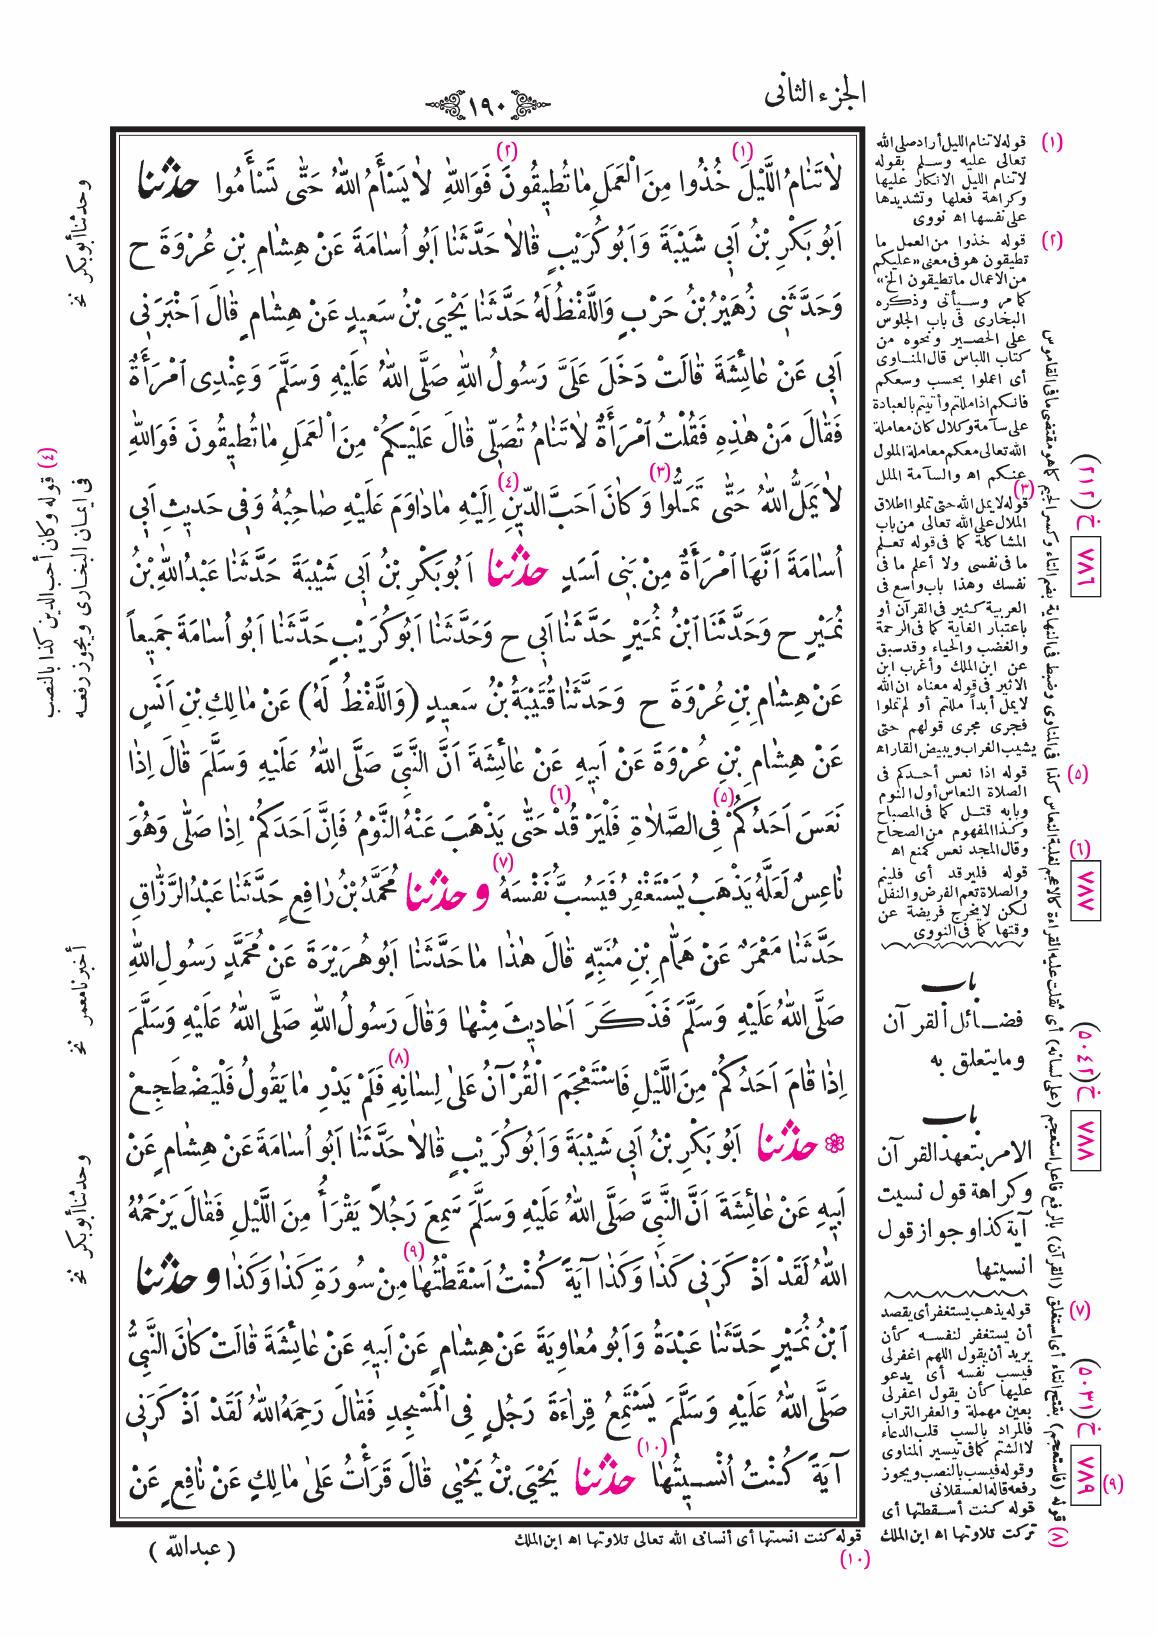 الجزء الثانى
١٩٠
لَا تَنَامُ اللَّيْلَ (١) خُذُوا مِنَ الْعَمَلِ مَا تُطِيقُونَ (٢) فَوَاللّٰهِ لَا يَسْأَمُ اللّٰهُ حَتَّى تَسْأَمُوا حدثنا
اَبُو بَكْرِ بْنُ اَبِي شَيْبَةَ وَاَبُو كُرَيْبٍ قَالَا حَدَّثَنَا اَبُو اُسَامَةَ عَنْ هِشَامِ بْنِ عُرْوَةَ ح
وَحَدَّثَنِي زُهَيْرُ بْنُ حَرْبٍ وَاللَّفْظُ لَهُ حَدَّثَنَا يَحْيَى بْنُ سَعِيدٍ عَنْ هِشَامٍ قَالَ اَخْبَرَنِي
اَبِي عَنْ عَائِشَةَ قَالَتْ دَخَلَ عَلَيَّ رَسُولُ اللّٰهِ صَلَّى اللّٰهُ عَلَيْهِ وَسَلَّمَ وَعِنْدِي امْرَأَةٌ
فَقَالَ مَنْ هٰذِهِ فَقُلْتُ امْرَأَةٌ لَا تَنَامُ تُصَلِّي قَالَ عَلَيْكُمْ مِنَ الْعَمَلِ مَا تُطِيقُونَ فَوَاللّٰهِ
لَا يَمَلُّ اللّٰهُ حَتَّى تَمَلُّوا (٣) وَكَانَ اَحَبَّ الدِّينِ (٤) اِلَيْهِ مَا دَاوَمَ عَلَيْهِ صَاحِبُهُ وَفِي حَدِيثِ اَبِي
اُسَامَةَ اَنَّهَا امْرَأَةٌ مِنْ بَنِي اَسَدٍ حدثنا اَبُو بَكْرِ بْنُ اَبِي شَيْبَةَ حَدَّثَنَا عَبْدُ اللّٰهِ بْنُ
نُمَيْرٍ ح وَحَدَّثَنَا ابْنُ نُمَيْرٍ حَدَّثَنَا اَبِي ح وَحَدَّثَنَا اَبُو كُرَيْبٍ حَدَّثَنَا اَبُو اُسَامَةَ جَمِيعاً
عَنْ هِشَامِ بْنِ عُرْوَةَ ح وَحَدَّثَنَا قُتَيْبَةُ بْنُ سَعِيدٍ (وَاللَّفْظُ لَهُ) عَنْ مَالِكِ بْنِ اَنَسٍ
عَنْ هِشَامِ بْنِ عُرْوَةَ عَنْ اَبِيهِ عَنْ عَائِشَةَ اَنَّ النَّبِيَّ صَلَّى اللّٰهُ عَلَيْهِ وَسَلَّمَ قَالَ اِذَا
نَعَسَ اَحَدُكُمْ (٥) فِي الصَّلَاةِ فَلْيَرْقُدْ (٦) حَتَّى يَذْهَبَ عَنْهُ النَّوْمُ فَاِنَّ اَحَدَكُمْ اِذَا صَلَّى وَهُوَ
نَاعِسٌ لَعَلَّهُ يَذْهَبُ يَسْتَغْفِرُ فَيَسُبُّ نَفْسَهُ (٧) وحدثنا مُحَمَّدُ بْنُ رَافِعٍ حَدَّثَنَا عَبْدُ الرَّزَّاقِ
حَدَّثَنَا مَعْمَرٌ عَنْ هَمَّامِ بْنِ مُنَبِّهٍ قَالَ هٰذَا مَا حَدَّثَنَا اَبُو هُرَيْرَةَ عَنْ مُحَمَّدٍ رَسُولِ اللّٰهِ
صَلَّى اللّٰهُ عَلَيْهِ وَسَلَّمَ فَذَكَرَ اَحَادِيثَ مِنْهَا وَقَالَ رَسُولُ اللّٰهِ صَلَّى اللّٰهُ عَلَيْهِ وَسَلَّمَ
اِذَا قَامَ اَحَدُكُمْ مِنَ اللَّيْلِ فَاسْتَعْجَمَ الْقُرْآنُ عَلَى لِسَانِهِ (٨) فَلَمْ يَدْرِ مَا يَقُولُ فَلْيَضْطَجِعْ
حدثنا اَبُو بَكْرِ بْنُ اَبِي شَيْبَةَ وَاَبُو كُرَيْبٍ قَالَا حَدَّثَنَا اَبُو اُسَامَةَ عَنْ هِشَامٍ عَنْ
اَبِيهِ عَنْ عَائِشَةَ اَنَّ النَّبِيَّ صَلَّى اللّٰهُ عَلَيْهِ وَسَلَّمَ سَمِعَ رَجُلاً يَقْرَأُ مِنَ اللَّيْلِ فَقَالَ يَرْحَمُهُ
اللّٰهُ لَقَدْ اَذْكَرَنِي كَذَا وَكَذَا آيَةً كُنْتُ اَسْقَطْتُهَا (٩) مِنْ سُورَةِ كَذَا وَكَذَا وحدثنا
ابْنُ نُمَيْرٍ حَدَّثَنَا عَبْدَةُ وَاَبُو مُعَاوِيَةَ عَنْ هِشَامٍ عَنْ اَبِيهِ عَنْ عَائِشَةَ قَالَتْ كَانَ النَّبِيُّ
صَلَّى اللّٰهُ عَلَيْهِ وَسَلَّمَ يَسْتَمِعُ قِرَاءَةَ رَجُلٍ فِي الْمَسْجِدِ فَقَالَ رَحِمَهُ اللّٰهُ لَقَدْ اَذْكَرَنِي
آيَةً كُنْتُ اُنْسِيتُهَا (١٠) حدثنا يَحْيَى بْنُ يَحْيَى قَالَ قَرَأْتُ عَلَى مَالِكٍ عَنْ نَافِعٍ عَنْ
(١) قوله لا تنام الليل أراد صلى الله
تعالى عليه وسلم بقوله
لا تنام الليل الانكار عليها
وكراهة فعلها وتشديدها
على نفسها اه نووى
(٢) قوله خذوا من العمل ما
تطيقون هو فى معنى «عليكم
من الاعمال ما تطيقون الخ»
كما مر وسيأتى وذكره
البخارى فى باب الجلوس
على الحصير ونحوه من
كتاب اللباس قال المناوى
أى اعملوا بحسب وسعكم
فانكم اذا مللتم وأتيتم بالعبادة
على سآمة وكلال كان معاملة
الله تعالى معكم معاملة الملول
عنكم اه والسآمة الملل
(٣) قوله لا يمل الله حتى تملوا اطلاق
الملال على الله تعالى من باب
المشاكلة كما فى قوله تعلم
ما فى نفسى ولا أعلم ما فى
نفسك وهذا باب واسع فى
العربية كثير فى القرآن أو
باعتبار الغاية كما فى الرحمة
والغضب والحياء وقد سبق
عن ابن الملك وأغرب ابن
الاثير فى قوله معناه ان الله
لا يمل أبداً مللتم أو لم تملوا
فجرى مجرى قولهم حتى
يشيب الغراب ويبيض القار اه
(٥) قوله اذا نعس أحدكم فى
الصلاة النعاس أول النوم
وبابه قتل كما فى المصباح
وكذا المفهوم من الصحاح
وقال المجد نعس كمنع اه
(٦) قوله فليرقد أى فلينم
والصلاة تعم الفرض والنفل
لكن لا يخرج فريضة عن
وقتها كما فى النووى
باب
فضائل القرآن
وما يتعلق به
باب
الامر بتعهد القرآن
وكراهة قول نسيت
آية كذا وجواز قول
انسيتها
(٧) قوله يذهب يستغفر أى يقصد
أن يستغفر لنفسه كأن
يريد أن يقول اللهم اغفر لى
فيسب نفسه أى يدعو
عليها كأن يقول اعفر لى
بعين مهملة والعفر التراب
فالمراد بالسب قلب الدعاء
لا الشتم كما فى تيسير المناوى
وقوله فيسب بالنصب ويجوز
رفعه قاله العسقلانى
(٩) قوله كنت أسقطتها أى
تركت تلاوتها اه ابن الملك
(٨) قوله (فاستعجم) بفتح التاء أى استغلق (القرآن) بالرفع فاعل استعجم (على لسانه) أى ثقلت عليه القراءة كالاعجم لغلبة النعاس كذا فى المناوى وضبط فى النهاية بضم التاء وكسر الجيم كما هو مقتضى ما فى القاموس
خ (٢١٢)
٧٨٦
٧٨٧
خ (٥٠٤٢)
٧٨٨
خ (٥٠٣١)
٧٨٩
وحدثنا أبو بكر نخ
(٤) قوله وكان أحب الدين كذا بالنصب
فى ايمان البخارى ويجوز رفعه
أخبرنا معمر نخ
وحدثنا أبو بكر نخ
قوله كنت انسيتها أى أنسانى الله تعالى تلاوتها اه ابن الملك
(١٠)
( عبدالله )